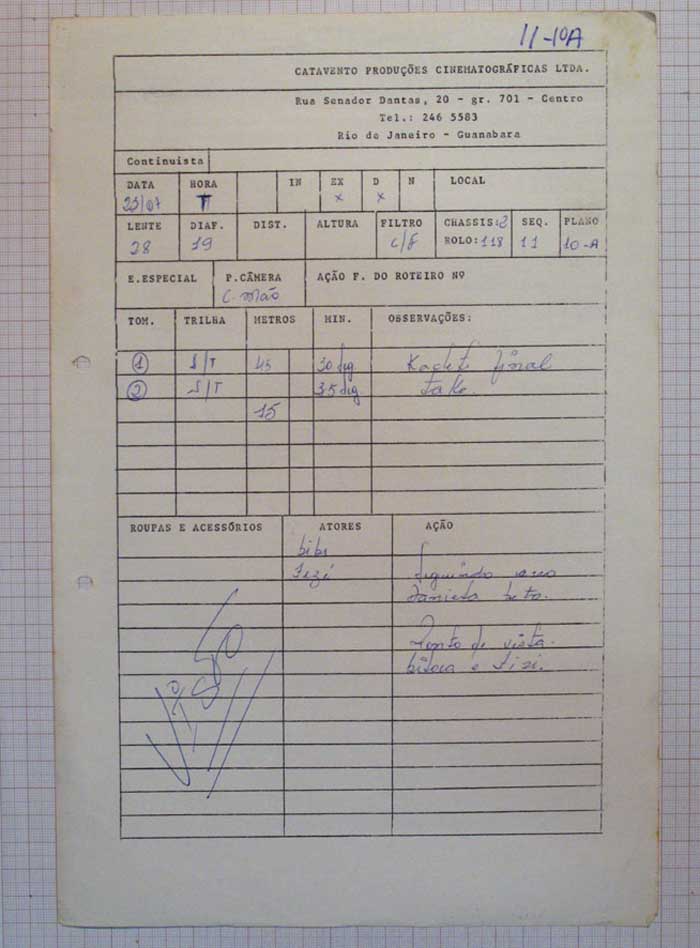 11-10A
CATAVENTO PRODUÇÕES CINEMATOGRÁFICAS LTDA.
Rua Senador Dantas, 20 - gr. 701 - Centro
Tel.: 246 5583
Rio de Janeiro - Guanabara
Continuista
DATA HORA IN EX D N LOCAL
T x x
LENTE DIAF. DIST. ALTURA FILTRO CHASSIS: 2 SEQ. PLANO
28 19 c/F ROLO: 118 11 10-A
E.ESPECIAL P.CÂMERA AÇÃO F. DO ROTEIRO Nº
C. mão
TOM. TRILHA METROS MIN. OBSERVAÇÕES:
1 S/T 45 30 final
2 S/T 35 take.
15
ROUPAS E ACESSÓRIOS ATORES AÇÃO
bibi
Seguindo
beto.
Ponto de vista
e Zizi.